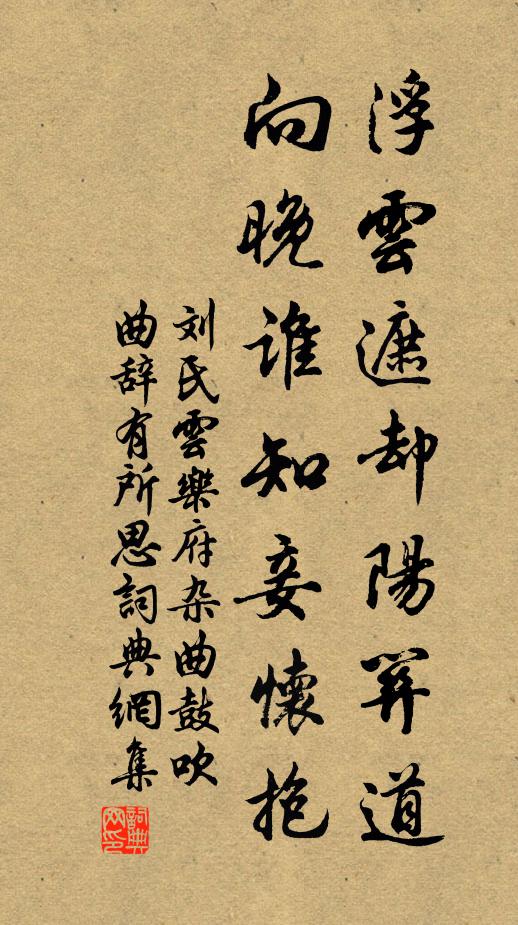 浮雲遮却陽關道
向晚誰知妾懷抱
刘氏雲樂府杂曲鼓吹
曲辞有所思詞典網集
詞典
网印